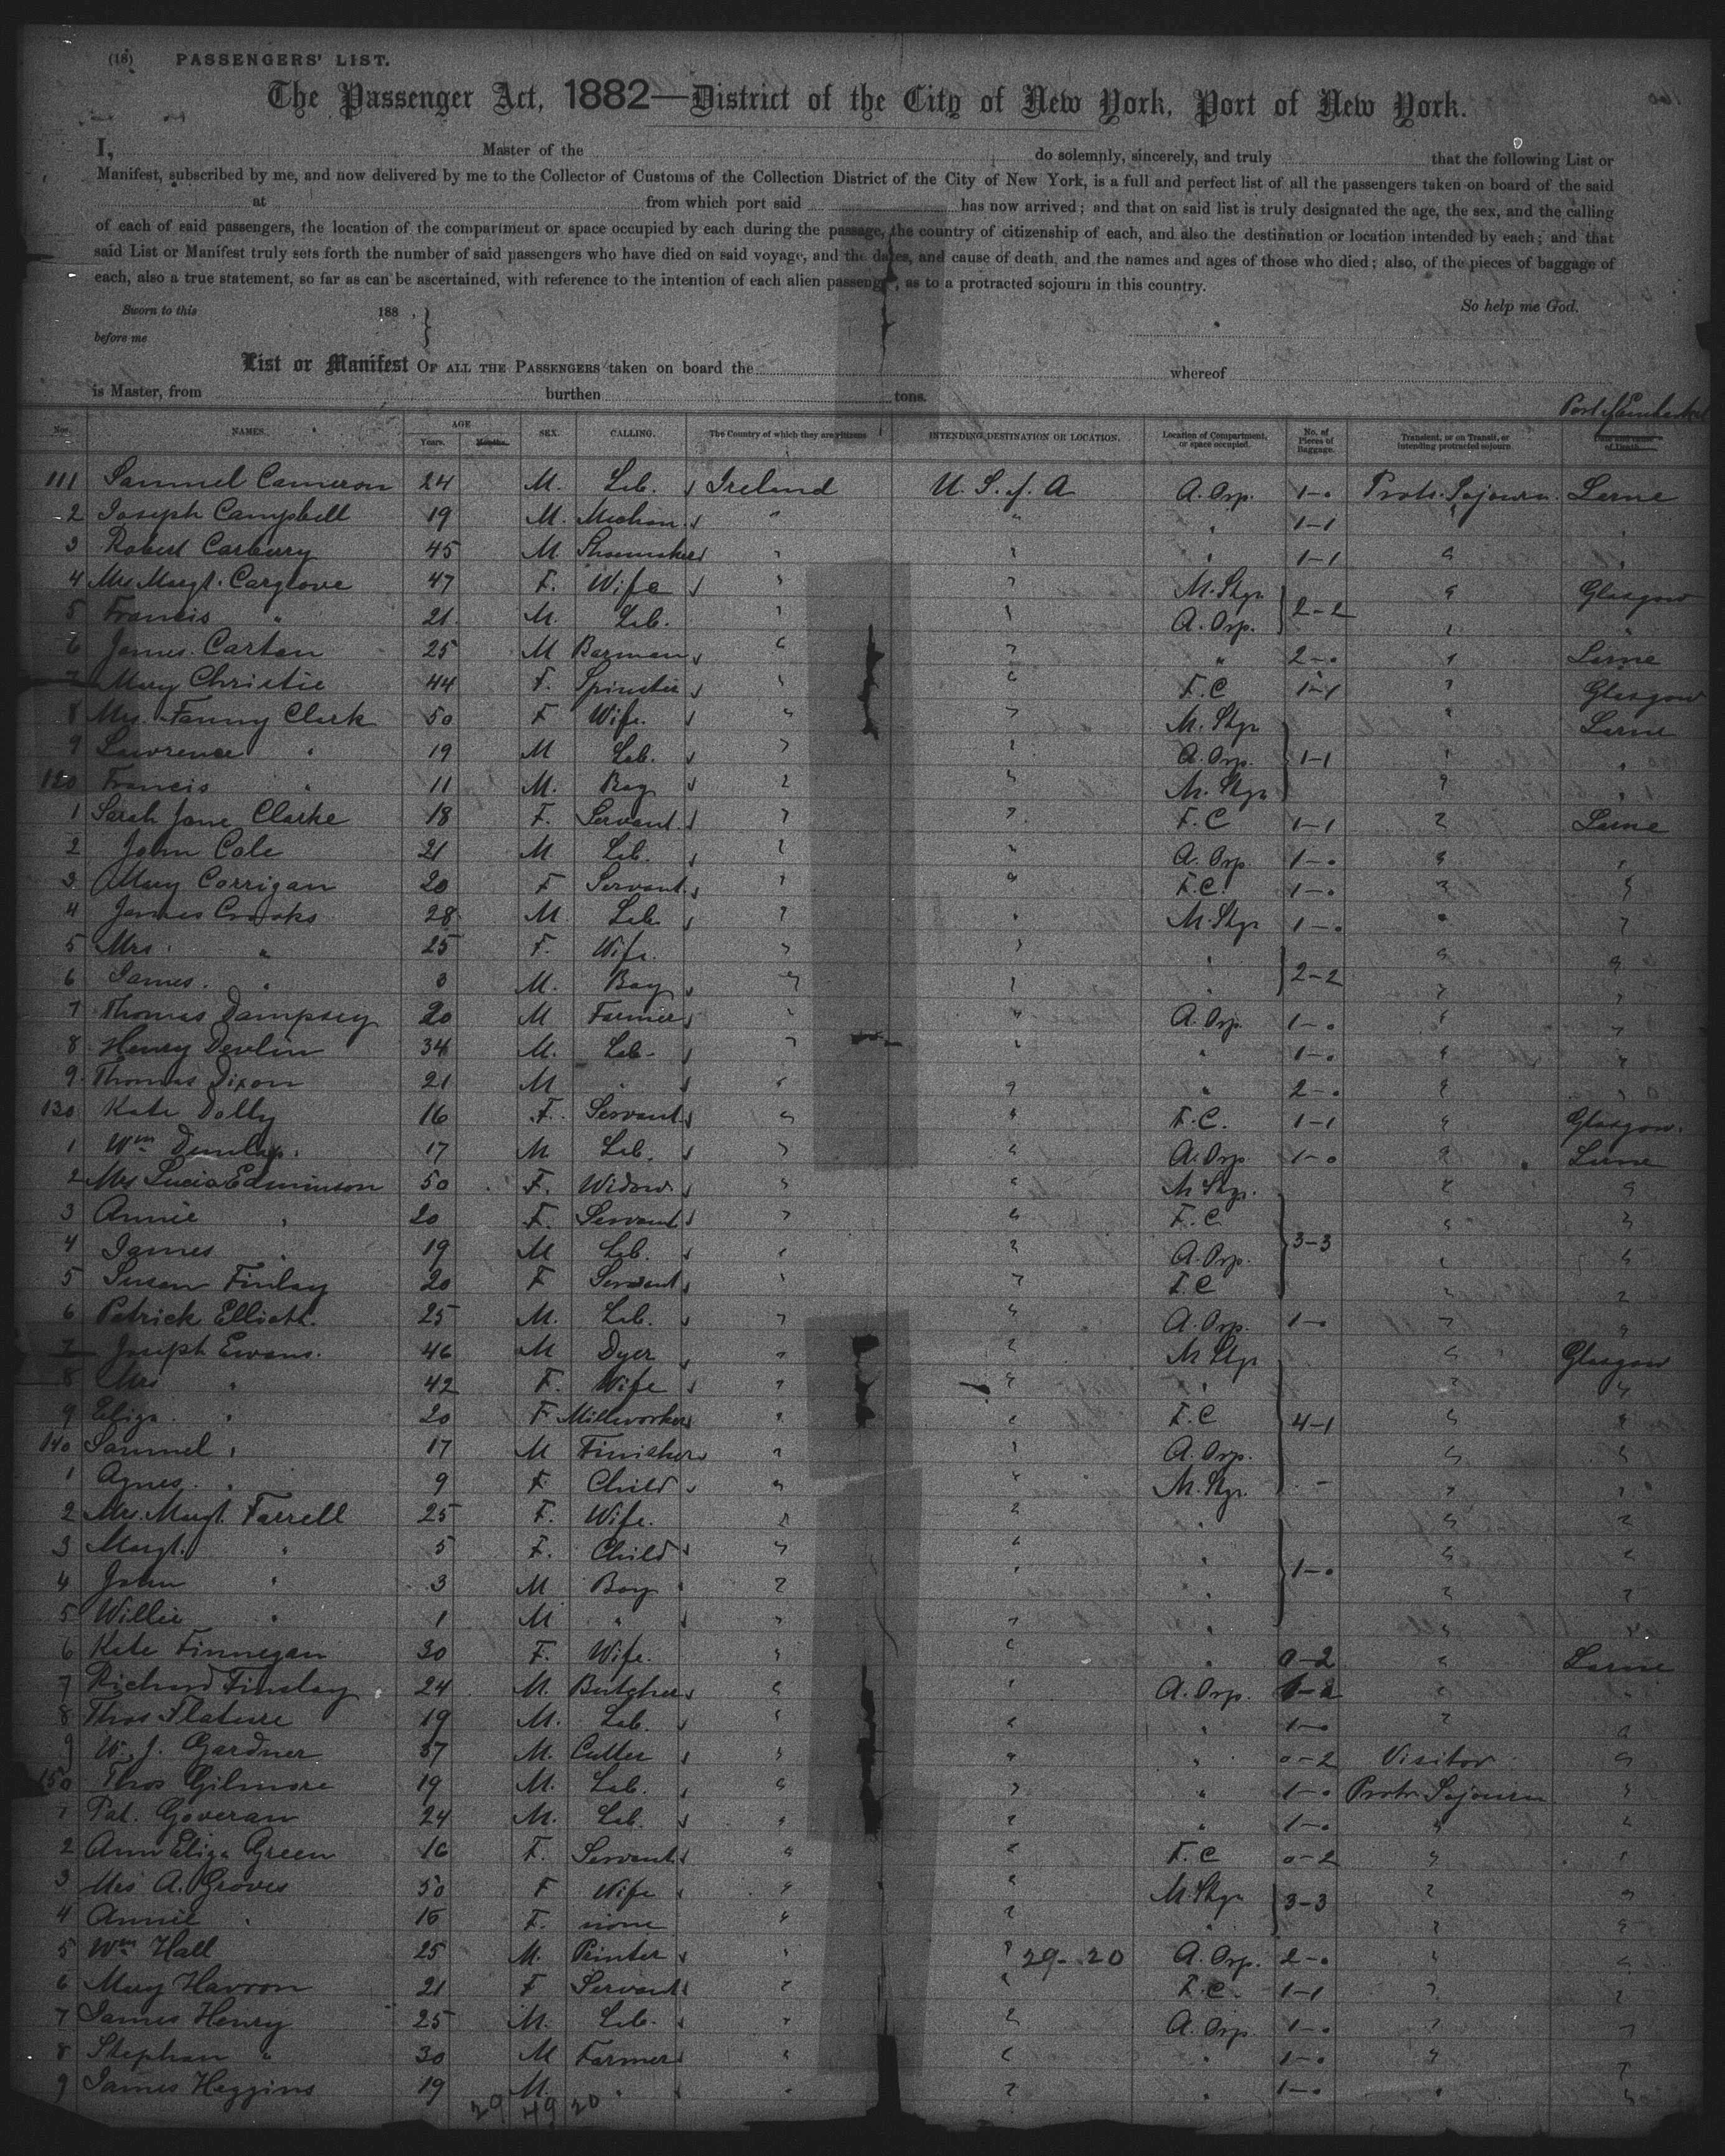 (16) PASSENGERS' LIST.
The Passenger Act, 1882—District of the City of New York, Port of New York.
I, Master of the do solemnly, sincerely, and truly that the following List or
Manifest, subscribed by me, and now delivered by me to the Collector of Customs of the Collection District of the City of New York, is a full and perfect list of all the passengers taken on board of the said
at from which port said has now arrived; and that on said list is truly designated the age, the sex, and the calling
of each of said passengers, the location of the compartment or space occupied by each during the passage, the country of citizenship of each, and also the destination or location intended by each; and that
said List or Manifest truly sets forth the number of said passengers who have died on said voyage, and the dates, and cause of death, and the names and ages of those who died; also, of the pieces of baggage of
each, also a true statement, so far as can be ascertained, with reference to the intention of each alien passenger, as to a protracted sojourn in this country.
So help me God.
Sworn to this 188 }
before me
List or Manifest OF ALL THE PASSENGERS taken on board the whereof
is Master, from burthen tons.
Port of Embarkat
Nos. NAMES. AGE Years. Months. SEX. CALLING. The Country of which they are citizens INTENDING DESTINATION OR LOCATION. Location of Compartment, or space occupied. No. of Pieces of Baggage. Transient, or on Transit, or intending protracted sojourn Date and cause of Death.
111 Samuel Cameron 24 M. Lab. Ireland U. S. of A A. Orp. 1-0 Protr. Sojourn. Larne
2 Joseph Campbell 19 M. Mechan. " " " 1-1 " "
3 Robert Carberry 45 M. Shoemaker " " " 1-1 " "
4 Mrs Margt. Carglove 47 F. Wife " " M. Stge 2-2 " Glasgow
5 Francis " 21 M. Lab. " " A. Orp. " "
6 James Carton 25 M Barman " " " 2-0 " Larne
7 Mary Christie 44 F. Spinster " " F.C 1-1 " Glasgow
8 Mrs. Fanny Clark 50 F Wife. " " M. Stge " Larne
9 Lawrence " 19 M Lab. " " A. Orp. 1-1 " "
120 Francis " 11 M. Boy " " M. Stge " "
1 Sarah Jane Clarke 18 F. Servant. " " F.C 1-1 " Larne
2 John Cole 21 M Lab. " " A. Orp. 1-0 " "
3 Mary Corrigan 20 F Servant. " " F.C. 1-0 " "
4 James Crooks 28 M. Lab. " " M. Stge 1-0 " "
5 Mrs. " 25 F. Wife. " " " 2-2 " "
6 James. " 3 M. Boy " " " " "
7 Thomas Dampsey 20 M Farmer " " A. Orp. 1-0 " "
8 Henry Devlin 34 M. Lab. " " " 1-0 " "
9 Thomas Dixon 21 M " " " " 2-0 " "
130 Kate Dolly 16 F. Servant. " " F.C. 1-1 " Glasgow.
1 Wm Dunlap. 17 M Lab. " " A. Orp. 1-0 " Larne
2 Mrs Lucia Edminson 50 F. Widow " " M Stge. " "
3 Annie " 20 F. Servant " " F.C. 3-3 " "
4 James " 19 M Lab. " " A. Orp. " "
5 Susan Finlay 20 F Servant " " F.C " "
6 Patrick Elliott. 25 M. Lab. " " A. Orp. 1-0 " "
7 Joseph Ewans. 46 M Dyer " " M Stge " Glasgow
8 Mrs " 42 F. Wife " " " " "
9 Eliza. " 20 F Millworker " " F.C 4-1 " "
140 Samuel " 17 M Finisher " " A. Orp. " "
1 Agnes. " 9 F. Child " " M. Stge. " "
2 Mrs. Margt. Farrell 25 F. Wife. " " " " "
3 Margt. " 5 F. Child " " " 1-0 " "
4 John " 3 M Boy " " " " "
5 Willie " 1 M " " " " " "
6 Kate Finnegan 30 F. Wife. " " " 0-2 " Larne
7 Richard Finslay 24 M. Butcher " " A. Orp. " "
8 Thos Flature 19 M. Lab. " " " 1-0 " "
9 W. J. Gardner 37 M. Cutter " " " 0-2 Visitor "
150 Thos Gilmore 19 M. Lab. " " " 1-0 Protr Sojourn "
1 Pat. Goveran 24 M. Lab. " " " 1-0 " "
2 Ann Eliza Green 16 F. Servant " " F.C 0-2 " "
3 Mrs A. Groves 50 F Wife " " M. Stge 3-3 " "
4 Annie " 15 F. none " " " " "
5 Wm Hall 25 M. Printer " " 29-20 A. Orp. 2-0 " "
6 Mary Havron 21 F Servant " " F.C. 1-1 " "
7 James Henry 25 M. Lab. " " A. Orp. 1-0 " "
8 Stephan " 30 M Farmer " " " 1-0 " "
9 James Heggins 19 M. " " " " 1-0 " "
29 49 20